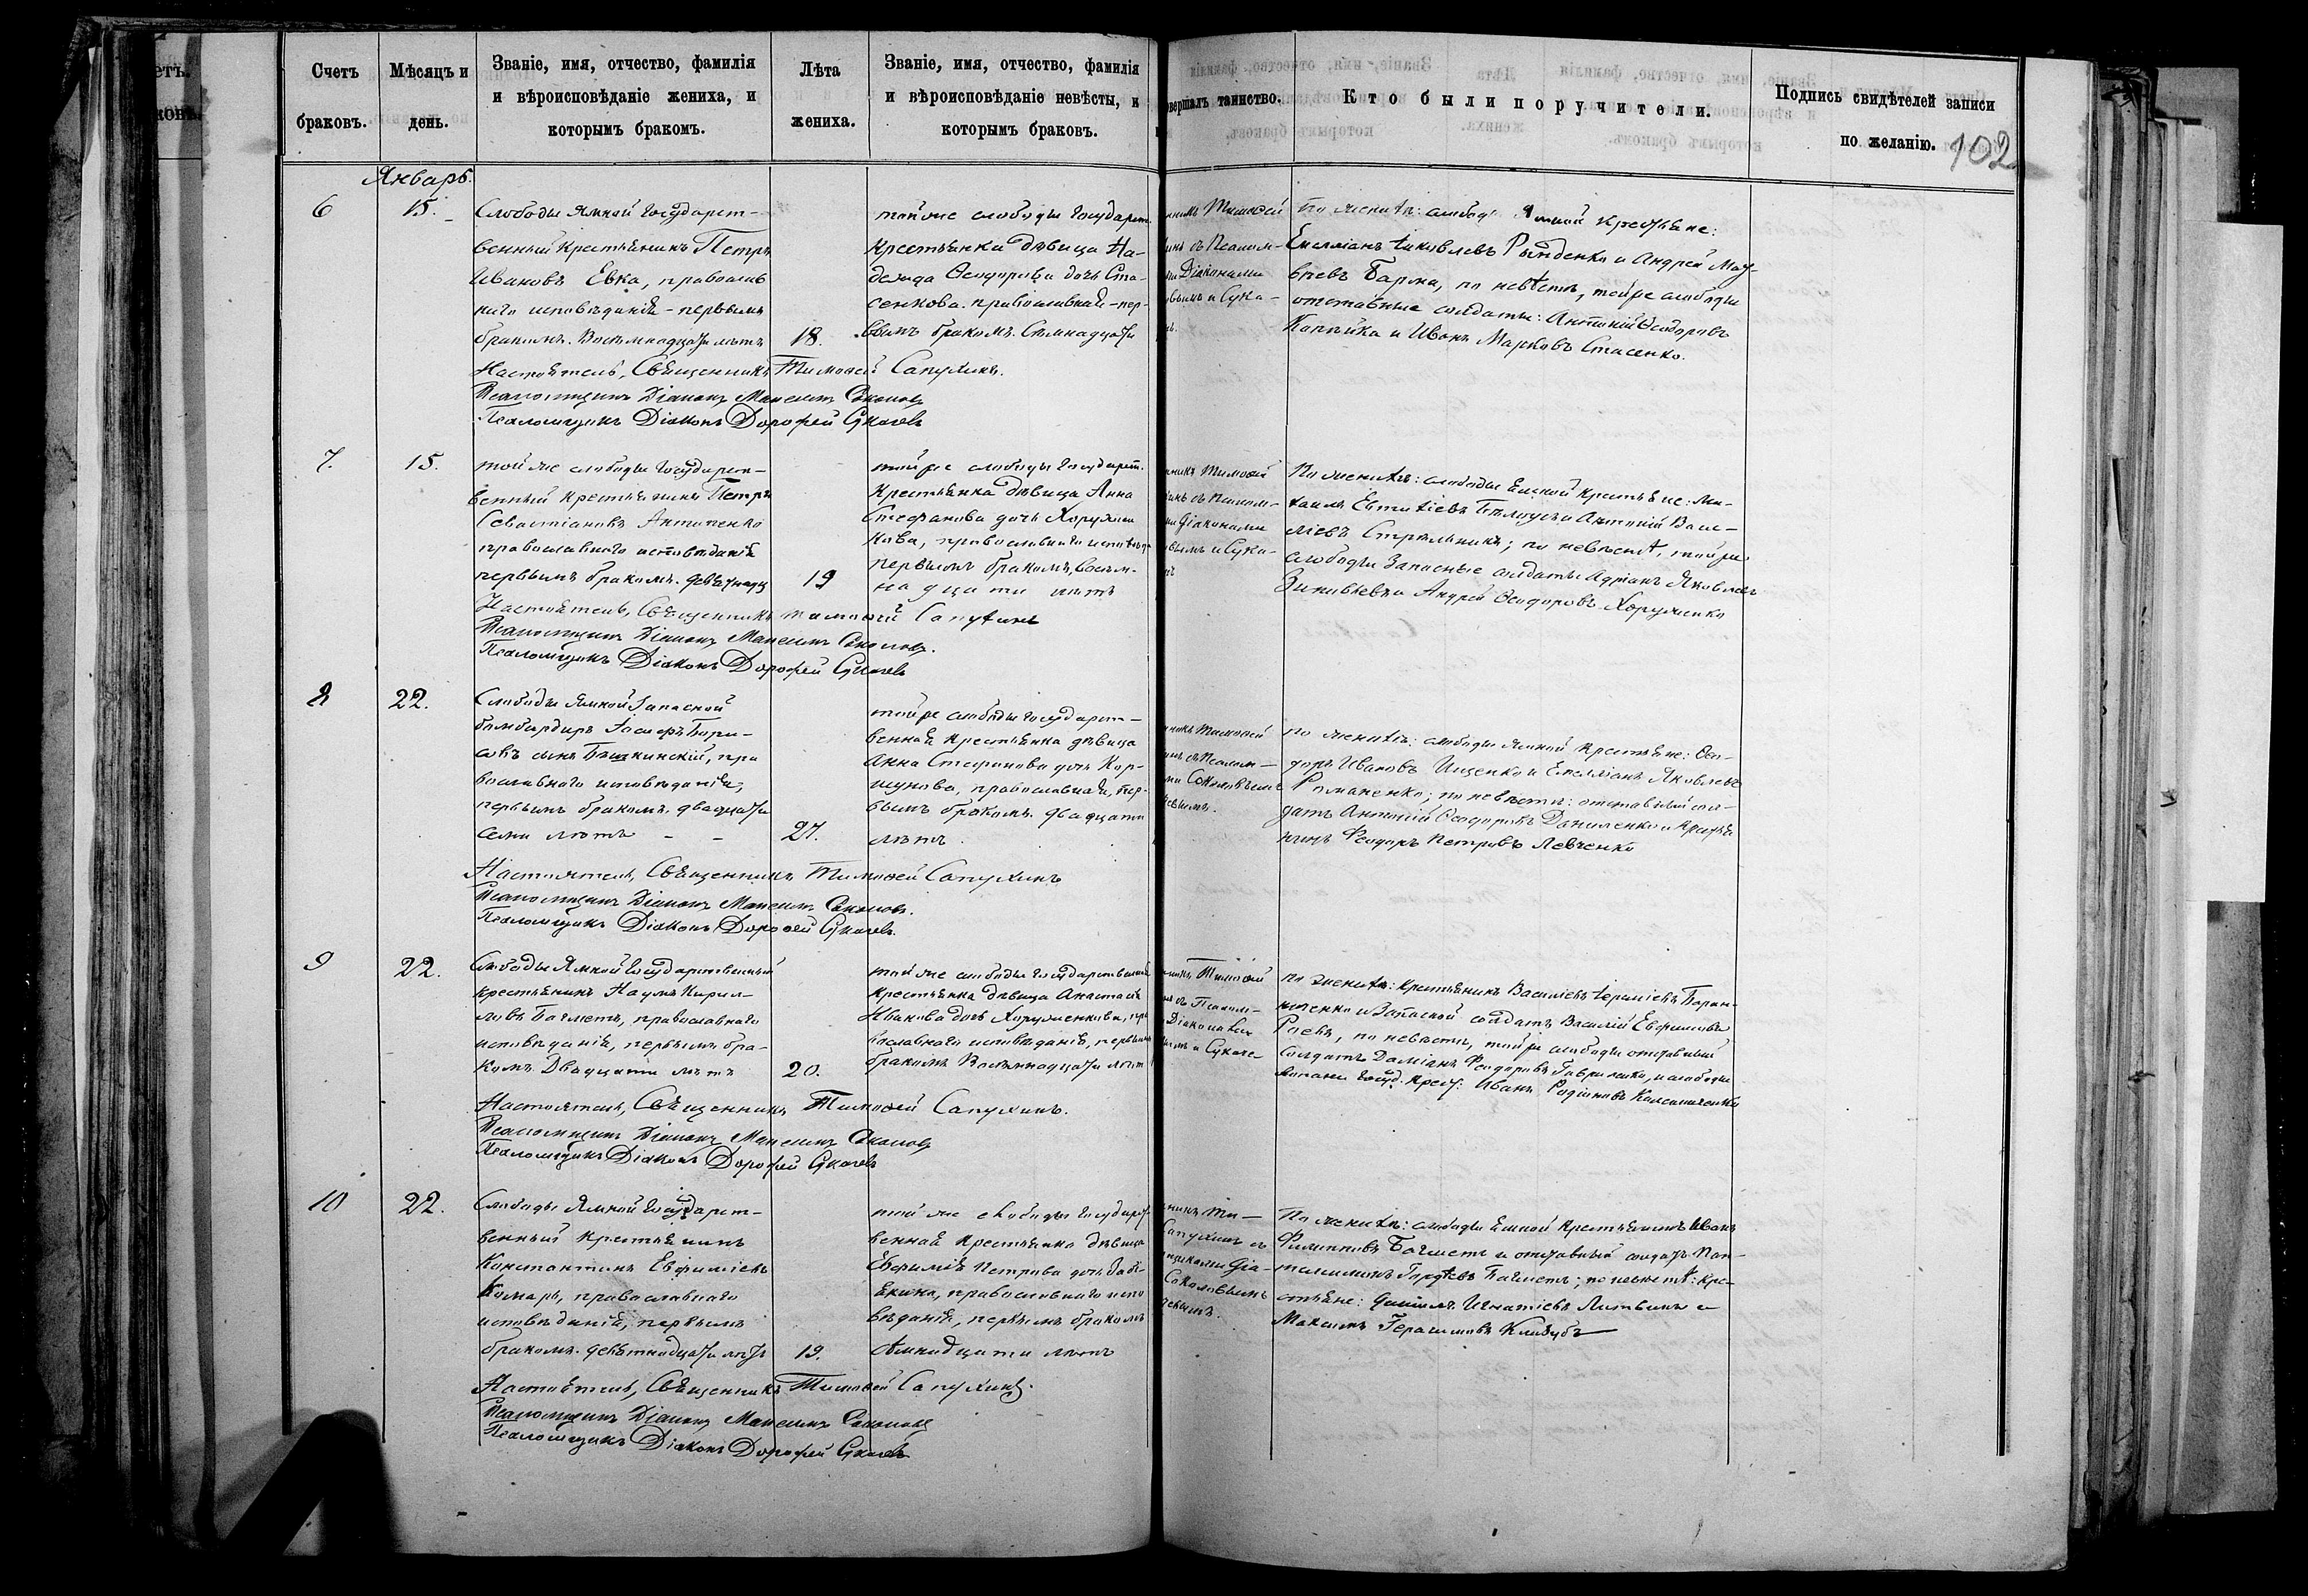 Счетъ браковъ.
Мѣсяцъ и день.
Званіе, имя, отчество, фамилія и вѣроисповѣданіе жениха, и которымъ бракомъ.
Лѣта жениха.
Званіе, имя, отчество, фамилія и вѣроисповѣданіе невѣсты, и которымъ браковъ.
овершалъ таинство.
Кто были поручители.
Подпись свидѣтелей записи по желанію.
102
Январь.
6
15.
Слободы Ямной Государст-
венный Крестьянинъ Петръ
Ивановъ Евка, православ
наго исповѣданія - первымъ
бракомъ. Восемнадцати лѣтъ
18.
той же слободы Государст.
крестьянка дѣвица На-
дежда Ѳеодорова дочь Ста-
сенкова. православная - пер-
вымъ бракомъ. Семнадцати
Тимоѳей
съ Псалом-
Діаконами
и Сука-
По женихѣ: слободы Ямной крестьяне:
Емеліанъ Яковлевъ и Андрей Мат-
вѣевъ, по невѣстѣ, той же слободы
отставные солдаты: Антоній Ѳеодоровъ
Копѣйка и Иванъ Марковъ Стасенко.
Настоятель, Священникъ Тимоѳей Сапухинъ.
Псаломщикъ Діаконъ Максимъ Соколовъ
Псаломщикъ Діаконъ Дорофей Сукачевъ
7.
15.
той же слободы Государст-
венный крестьянинъ Петръ
Севастіановъ Антипенко
православнаго исповѣданія
первымъ бракомъ. девятнадц
19
той же слободы Государст.
крестьянка дѣвица Анна
Стефанова дочь Хоружен
кова, православнаго исповѣд
первымъ бракомъ, восем-
надцати лѣтъ
Тимоѳей
съ Псалом-
Діаконами
и Сука-
По женихѣ: слободы Ямной крестьяне: Ми-
хаилъ Евтихіевъ и Антоній Васи-
ліевъ Стрѣльникъ; по невѣстѣ, той же
слободы Запасные солдаты Адріанъ Яковлевъ
и Андрей Ѳеодоровъ Хоруженко
Настоятель, Священникъ Тимоѳей Сапухинъ
Псаломщикъ Діаконъ Максимъ Соколовъ.
Псаломщикъ Діаконъ Дорофей Сукачевъ
8
22.
Слободы Ямной Запасной
бомбардиръ Іосифъ Бори-
совъ сынъ, пра
вославнаго исповѣданія,
первымъ бракомъ. двадцати
семи лѣтъ - -
27.
той же слободы государст-
венная крестьянка дѣвица
Анна Стефанова дочь Кор-
шунова, православная, пер-
вымъ бракомъ. двадцати
лѣтъ.
Тимоѳей
съ Псалом-
Соколовымъ
по женихѣ: слободы Ямной крестьяне: Ѳео-
доръ Ивановъ Ищенко и Емеліанъ Яковлевъ
Романенко; по невѣстѣ: отставной сол-
датъ Антоній Ѳеодоровъ Даниленко и крестья
нинъ Ѳеодоръ Петровъ Левченко
Настоятель, Священникъ Тимоѳей Сапухинъ
Псаломщикъ Діаконъ Максимъ Соколовъ.
Псаломщикъ Діаконъ Дороѳей Сукачевъ.
9
22.
Слободы Ямной Государственный
крестьянинъ Наумъ Кирил-
ловъ Багметъ, православнаго
исповѣданія, первымъ бра-
комъ. Двадцати лѣтъ
20.
той же слободы Государственная
крестьянка дѣвица Анастасія
Иванова дочь Хоруженкова, пра
вославнаго исповѣданія, первымъ
бракомъ Восемнадцати лѣтъ
Тимоѳей
съ Псалом-
Діаконами
и Сукаче
по женихѣ: крестьянинъ Василій
и Запасной солдатъ Василій Евфимовъ
по невѣстѣ, той же слободы отставной
Солдатъ Даміанъ Ѳеодоровъ Гавриленко, и слободы
Госуд. крест: Иванъ Родіоновъ
Настоятель, Священникъ Тимоѳей Сапухинъ.
Псаломщикъ Діаконъ Максимъ Соколовъ
Псаломщикъ Діаконъ Дорофей Сукачевъ
10
22.
Слободы Ямной Государст-
венный крестьянинъ
Константинъ Евфиміевъ
Комарь, православнаго
исповѣданія, первымъ
бракомъ. девятнадцати лѣтъ
19.
той же слободы Государст
венная крестьянка дѣвица
Евфимія Петрова дочь
православнаго испо
вѣданія, первымъ бракомъ
семнадцати лѣтъ
Ти-
Сапухинъ съ
діа-
Соколовымъ
По женихѣ: слободы Ямной крестьянинъ Иванъ
Филипповъ Багметъ и отставной солдатъ Пан-
телеимонъ Багметъ; по невѣстѣ: кре-
стьяне: Даніилъ Игнатіевъ Литвинъ и
Максимъ Герасимовъ
Настоятель, Священникъ Тимоѳей Сапухинъ.
Псаломщикъ Діаконъ Максимъ Соколовъ
Псаломщикъ Діаконъ Дорофей Сукачевъ